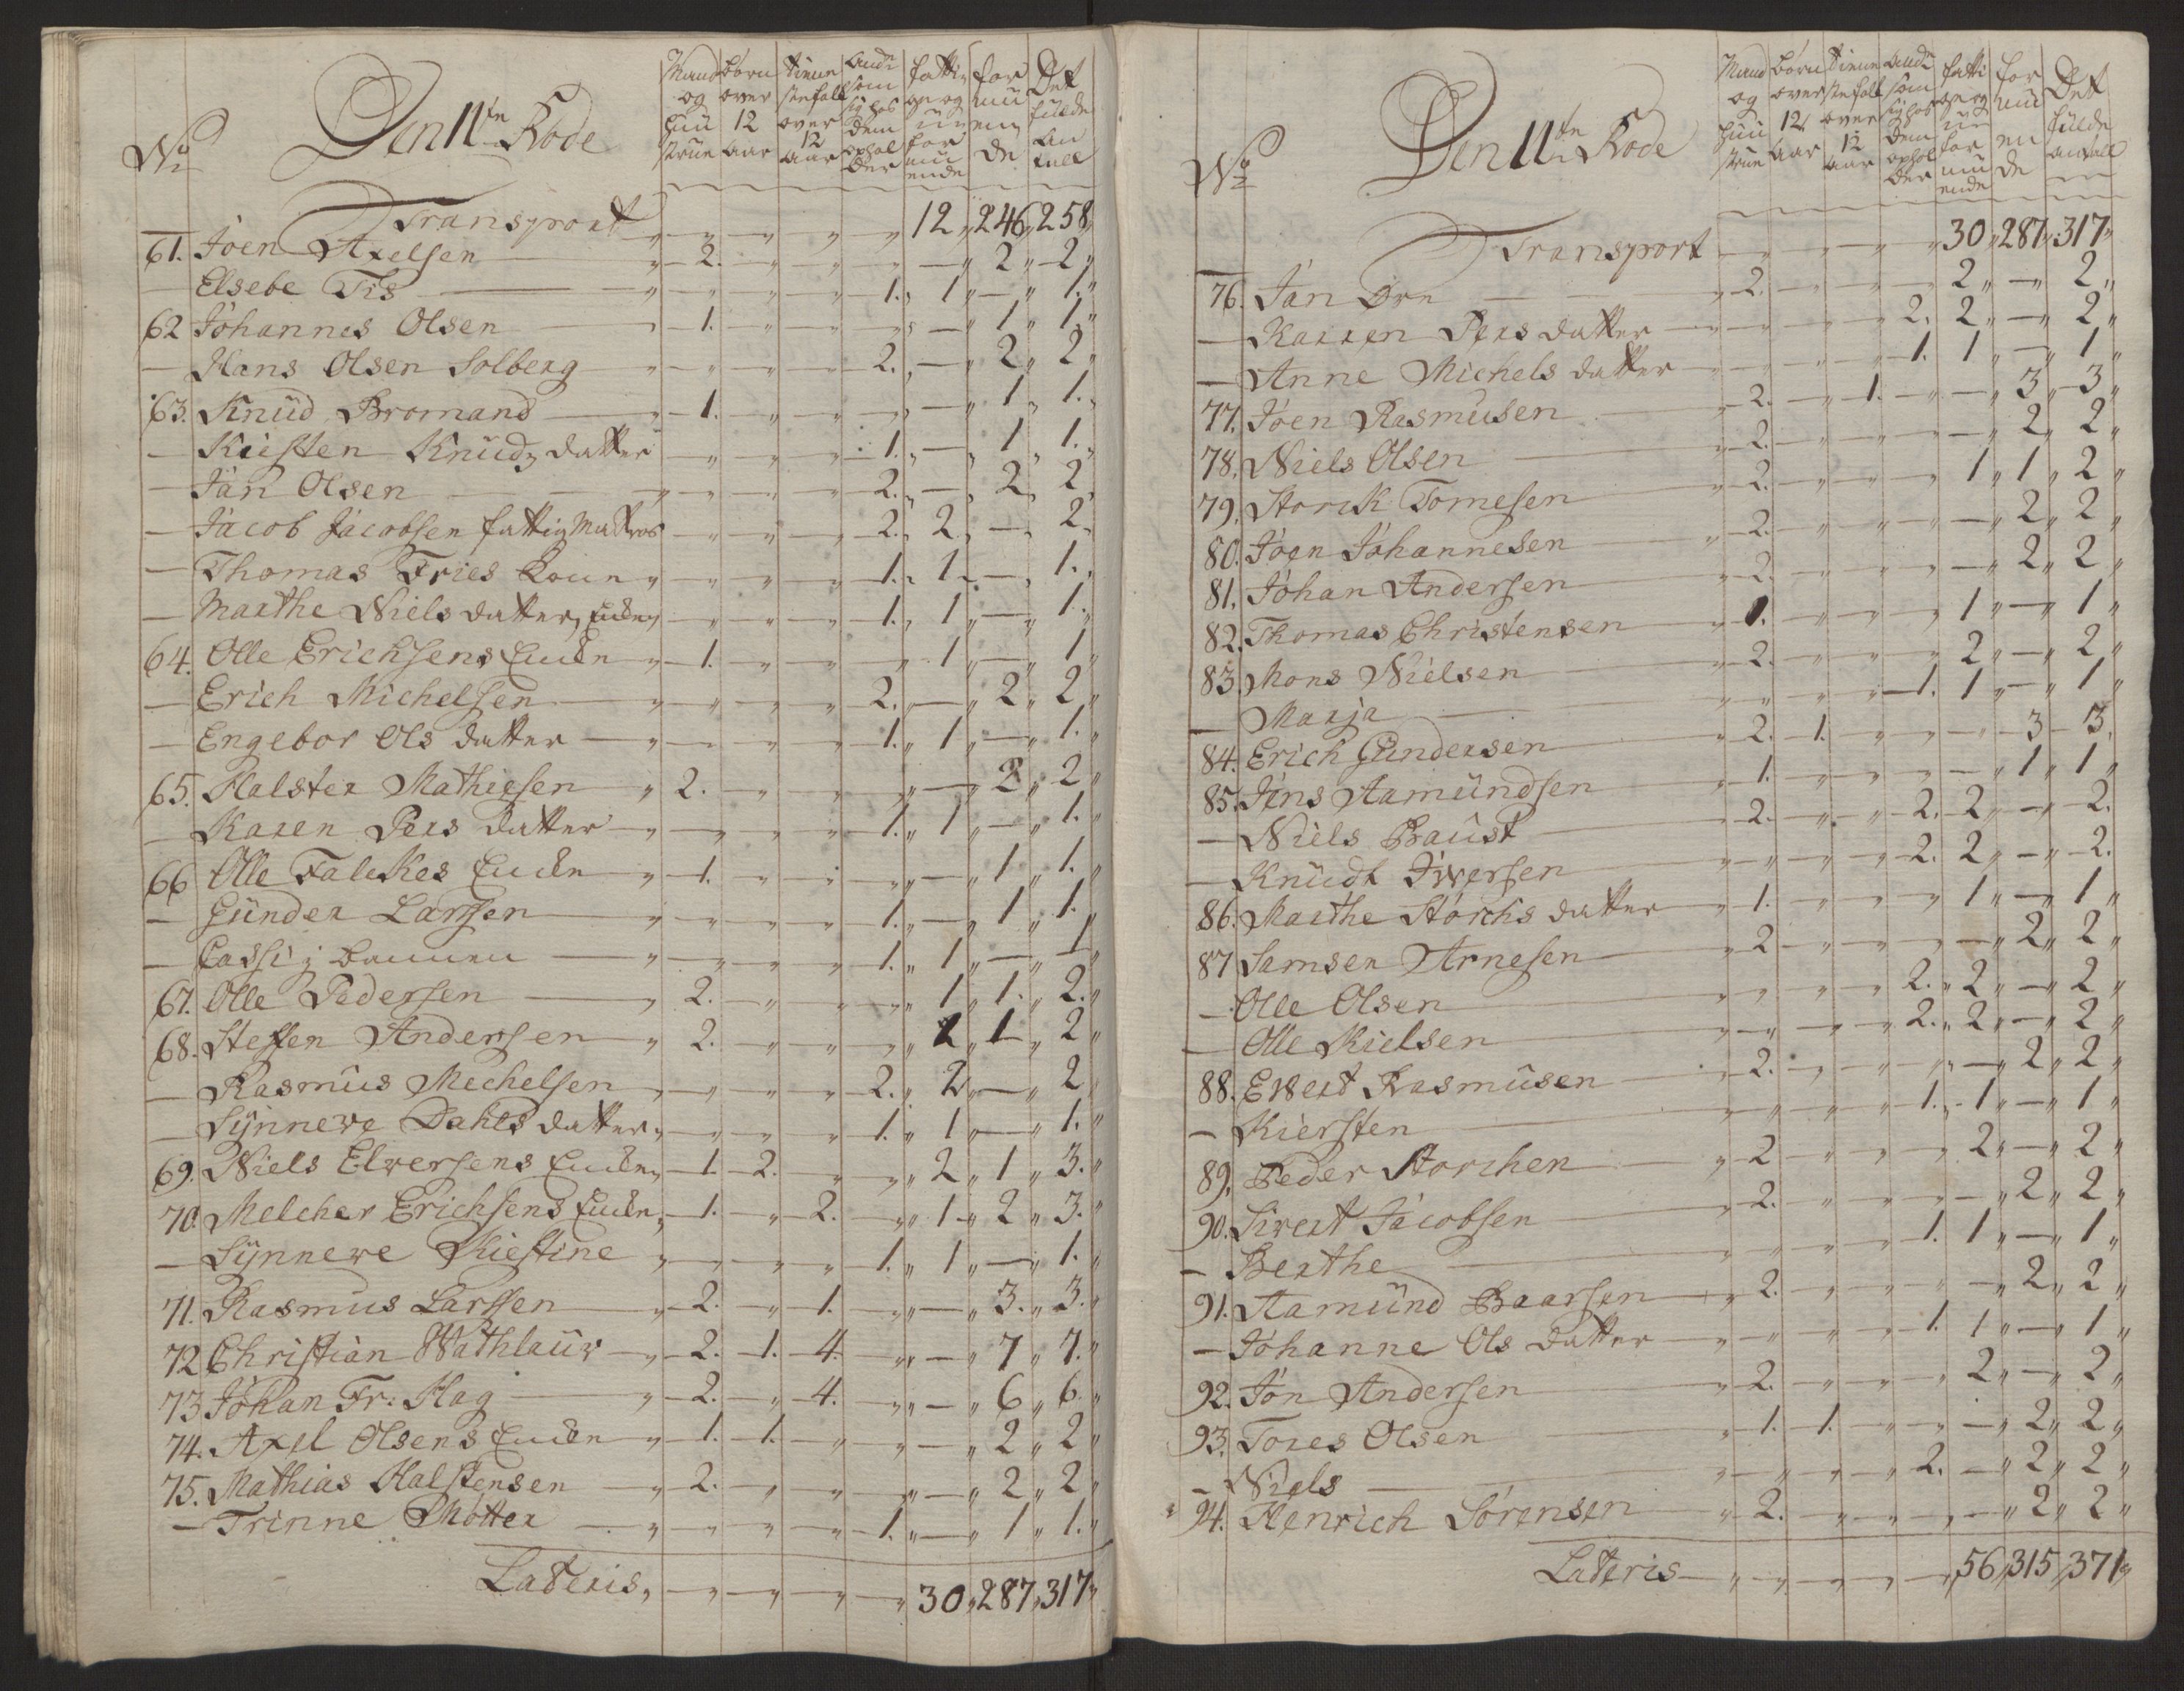 No
Den 11te Rode
Mand og Huustrue
børn over 12 aar
tienne stefolk over 12 aar
andre som sig hos dem ophol der
fatti ge og uu for mu ende
for mu en de
Det fulde an tall
Transport " " " " " 12 " 246 " 258 "
61. Joen Axelsen " 2. " " " — " 2 " 2 "
— Elsebe Fis " " " " 1. " 1 " — " 1. "
62 Johannes Olsen 1. " " " — " 1 " 1. "
— Hans Olsen Solberg " " " " 2. " — " 2 " 2 "
63. Knüd Bromand " 1. " " " — " 1 " 1. "
— Kiesten Knüdz datter " " " " 1. " — " 1 " 1. "
— Jan Olsen " " " " 2. " — " 2 " 2 "
— Jacob Jacobsen fattig Matros " " " 2. " 2 " — " 2 "
— Thomas Fries " " " " 1. " 1 " — " 1. "
— Marthe Niels datter, Enken " " " " 1. " 1 " — " 1. "
64. Olle Erichsens Enken " 1. " " " 1 " — " 1 "
— Erich Michelsen " " " " 2. " — " 2 " 2 "
— Engebor Ols datter " " " " 1. " 1 " — " 1. "
65. Halster Mathiesen " 2. " " " — " 2 " 2 "
— Karen Pers datter " " " " 1. " 1 " — " 1. "
66 Olle Falckes Enken " 1. " " " — " 1 " 1. "
— Günder Larsen " " " " 1. " — " 1 " 1. "
— " " " " 1. " 1 " — " 1 "
67. Olle Pedersen " 2. " " " 1 " 1. " 2. "
68. Steffen Andersen " 2. " " " 1 " 1 " 2 "
— Rasmus Mechelsen " " " " 2. " 2 " — " 2 "
— Synnewe Dahls datter " " " " 1. " 1 " — " 1. "
69. Niels Elversens Enken " 1. 2. " " 2 " 1 " 3. "
70. Melcher Erichsens Enken " 1. " 2. " 1 " 2 " 3. "
— Synnewe Kiestine " " " " 1. " 1 " — " 1. "
71. Rasmus Larssen " 2. " 1. " — " 3. " 3. "
72 Christian Wathlaür " 2. 1. 4. " — " 7 " 7. "
73 Johan Fr: Hag " 2. " 4. " — " 6 " 6. "
74. Axel Olsens Enken " 1. 1. " " — " 2 " 2 "
75. Mathias Halstensen " 2. " " " — " 2 " 2 "
— Trinne Motter " " " " 1. " — " 1 " 1. "
Lateris, " " " " " 30 " 287 " 317 "
No
Den 11te Rode
Mand og huus true
børn over 12 aar
tienne stefolk over 12 aar
andre som sig hos dem ophol der
fatti ge og uu for mu ende
for mu en de
Det fulde antall
Transport " " " " " 30 " 287 " 317 "
76. Jan Örn " 2. " " " 2 " — " 2 "
— Karren Pers datter " " " " 2. 2 " — " 2 "
— Anne Michels datter " " " " 1. 1 " — " 1 "
77. Joen Rasmusen " 2. " 1. " — " 3 " 3 "
78. Niels Olsen " 2. " " " — " 2 " 2 "
79. Storck Tomesen " 2. " " " 1 " 1 " 2 "
80. Joen Johannesen " 2. " " " — " 2 " 2 "
81. Johan Andersen " 2. " " " — " 2 " 2 "
82. Thomas Christensen " 1. " " " 1 " — " 1 "
83. Mons Nielsen " 2. " " " 2 " — " 2 "
— Marja " " " " 1. 1 " — " 1 "
84. Erich Gündersen " 2. 1. " " — 3 — 3.
85. Jens Aamündsen " 1. " " " — " 1 " 1 "
— Niels Baust " 2. " " 2. 2 " — " 2.
— Knüdt Iversen " " " " 2. 2 " — " 2.
86. Marthe Storchs datter " 1. " " " 1 " — " 1 "
87 Samsen Arnesen " 2 " " " — " 2 " 2 "
— Olle Olsen " " " " 2. " 2 " — " 2 "
— Olle Kielsen " " " " 2. " 2 " — " 2 "
88. Evert Rasmüsen " 2. " " " — " 2 " 2 "
— Kiersten " " " " 1. " 1 " — " 1 "
89. Peder Storchen " 2 " " " 2 " — " 2 "
90. Sivert Jacobsen " 2. " " " — " 2 " 2 "
— Berthe " " " " 1. 1 " — " 1 "
91. Aamünd Baarsen " 2. " " " — " 2 " 2 "
— Johanne Ols datter " " " " 1. 1 " — " 1 "
92. Jon Andersen " 2. " " " 2 " — " 2 "
93. Tores Olsen " 1. 1. " " — " 2 " 2 "
— Niels " " " " 2. — " 2 " 2 "
94. Henrich Sörensen " 2. " " " — " 2 " 2 "
Lateris " " " " " 56 " 315 " 371 "